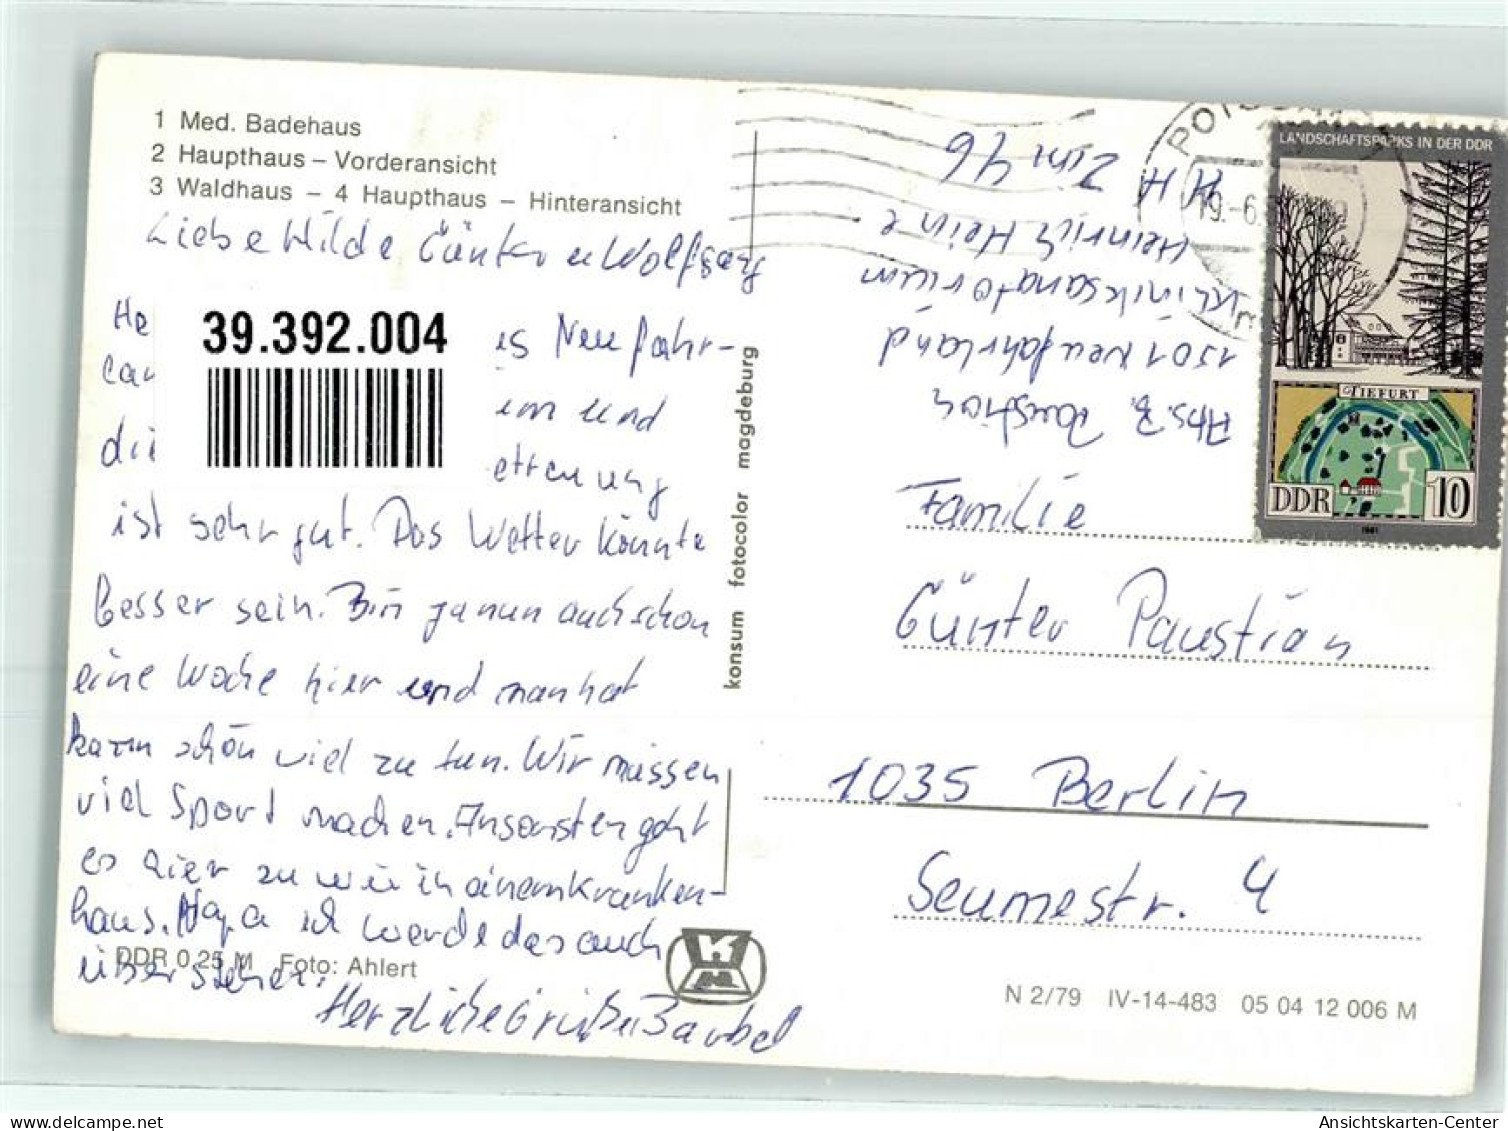 1 Med. Badehaus
2 Haupthaus – Vorderansicht
3 Waldhaus – 4 Haupthaus – Hinteransicht
Liebe Hilde Günter u Wolfgang
He
es Neu fahr-
lan
und
die
etreuung
ist sehr gut. Das Wetter könnte
besser sein. Bin ja nun auch schon
eine Woche hier und man hat
kazm schon viel zu tun. Wir müssen
viel Sport machen. Ansonsten geht
es hier zu wie in einem Kranken-
haus. Na ja ich werde das auch
überstehen.
Herzliche Grüße Barbel
DDR 0,25 M Foto: Ahlert
39.392.004
konsum fotocolor magdeburg
Abs. B. Paustian
1501 Neufahrland
Kliniksanatorium
Heinrich Heine
HH Zim 46
POTSDAM
19.-6.
LANDSCHAFTSPARKS IN DER DDR
TIEFURT
DDR 10
1981
Familie
Günter Paustian
1035 Berlin
Seumestr. 4
N 2/79 IV-14-483 05 04 12 006 M
Ansichtskarten-Center